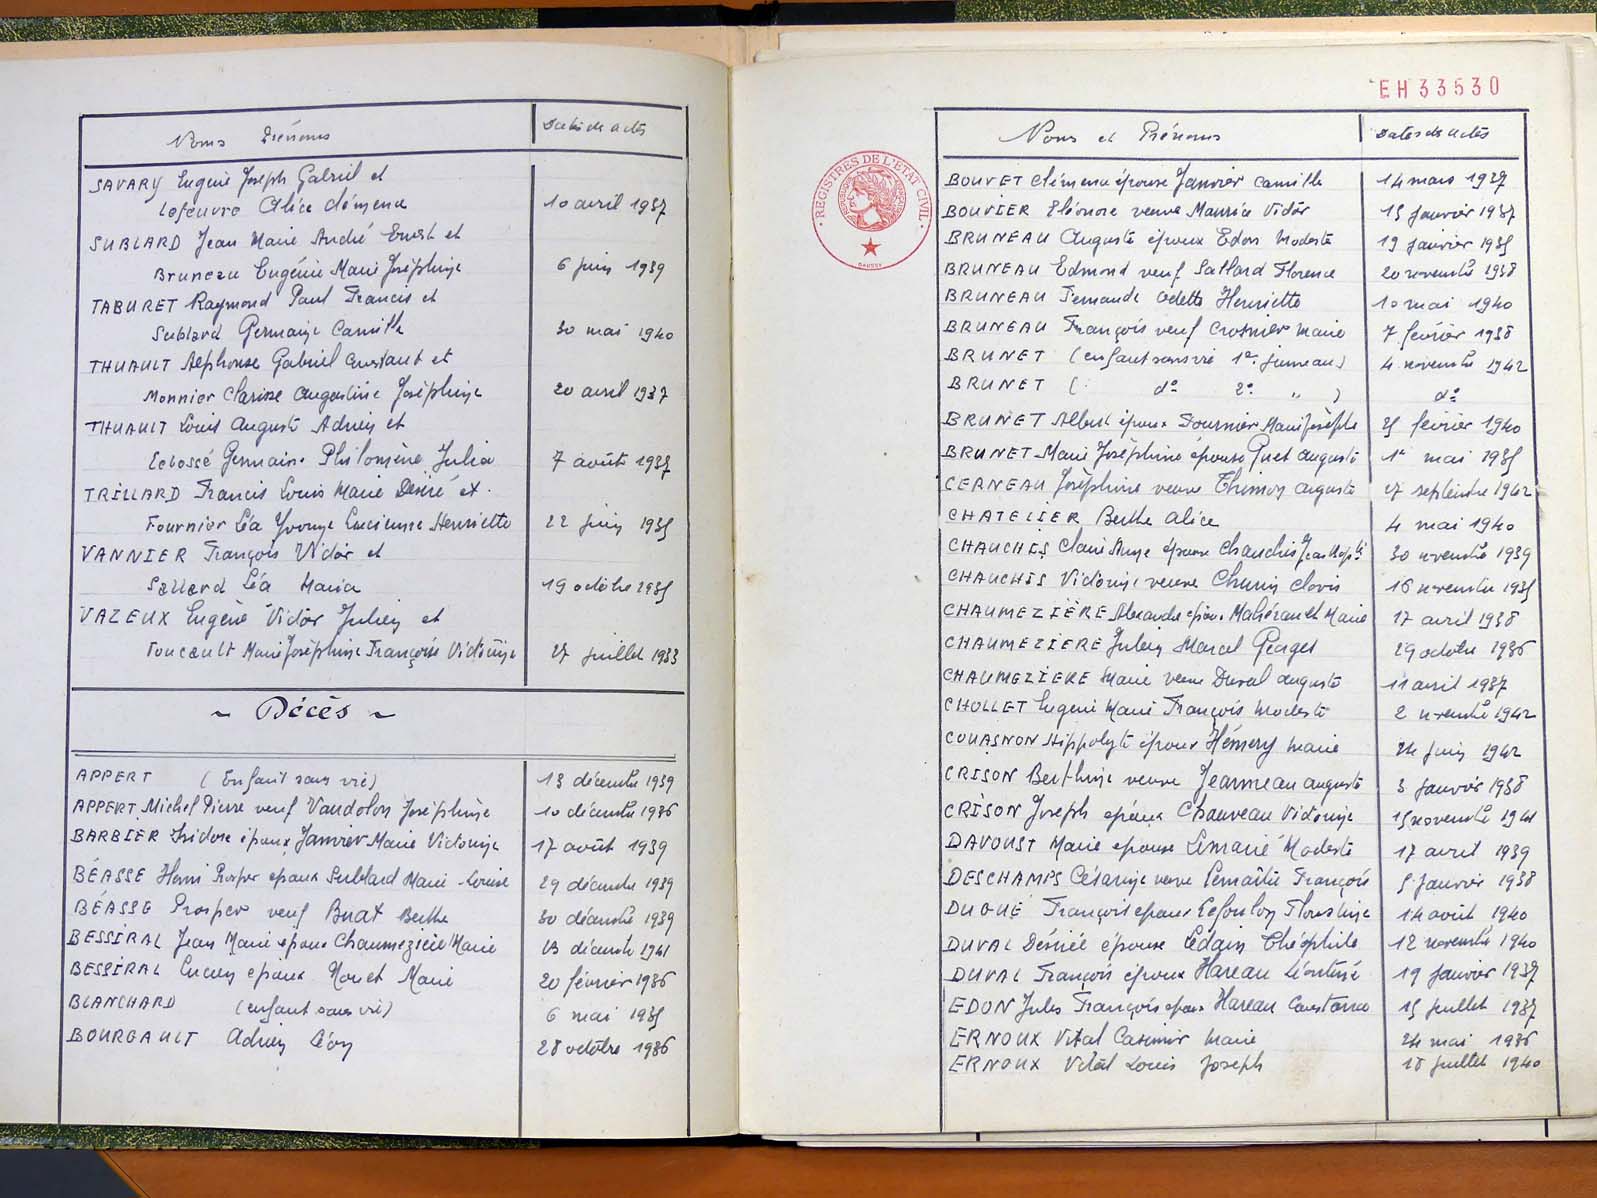 Noms Prénoms Dates des actes
SAVARY Eugène Joseph Gabriel et
Lefeuvre Alice Clémence 10 avril 1937
SUBLARD Jean Marie André Ernest et
Bruneau Eugénie Marie Joséphine 6 juin 1939
TABURET Raymond Paul Francis et
Sublard Germaine Camille 30 mai 1940
THUAULT Alphonse Gabriel Constant et
Monnier Clarisse Augustine Joséphine 20 avril 1937
THUAULT Louis Auguste Adrien et
Echossé Germaine Philomène Julia 7 août 1937
TRILLARD Francis Louis Marie Désiré et
Fournier Léa Yvonne Lucienne Henriette 22 juin 1935
VANNIER François Victor et
Sallard Léa Maria 19 octobre 1935
VAZEUX Eugène Victor Julien et
Foucault Marie Joséphine Françoise Victorine 27 juillet 1933
~ Décès ~
APPERT (Enfant sans vie) 13 décembre 1939
APPERT Michel Pierre veuf Vaudolon Joséphine 10 décembre 1936
BARBIER Isidore époux Janvier Marie Victorine 17 août 1939
BÉASSE Henri Prosper époux Sublard Marie Louise 29 décembre 1939
BÉASSE Prosper veuf Buat Berthe 30 décembre 1939
BESSIRAL Jean Marie époux Chaumezière Marie 13 décembre 1941
BESSIRAL Lucien époux Nouet Marie 20 février 1936
BLANCHARD (enfant sans vie) 6 mai 1935
BOURGAULT Adrien Léon 28 octobre 1936
EH33530
REGISTRES DE L'ETAT CIVIL
Noms et Prénoms Dates des actes
BOUVET Clémence épouse Janvier Camille 14 mars 1937
BOUVIER Eléonore veuve Maurice Victor 15 janvier 1937
BRUNEAU Auguste époux Edon Modeste 19 janvier 1935
BRUNEAU Edmond veuf Sallard Florence 20 novembre 1938
BRUNEAU Fernande Odette Henriette 10 mai 1940
BRUNEAU François veuf Crosnier Marie 7 février 1938
BRUNET (enfant sans vie 1er jumeau) 4 novembre 1942
BRUNET ( do 2e " ) do
BRUNET Albert époux Fournier Marie Josèphe 25 février 1940
BRUNET Marie Joséphine épouse Huet Auguste 1er mai 1935
CERNEAU Joséphine veuve Thimon Auguste 27 septembre 1942
CHATELIER Berthe Alice 4 mai 1940
CHAUCHIS Claire Ange épouse Chauchis Jean Bapte 30 novembre 1939
CHAUCHIS Victorine veuve Chunin Clovis 16 novembre 1935
CHAUMEZIÈRE Alexandre époux Mahérault Marie 17 avril 1938
CHAUMEZIERE Julien Marcel Georges 29 octobre 1936
CHAUMEZIERE Marie veuve Duval Auguste 11 avril 1937
CHOLLET Eugène Marie François Modeste 2 novembre 1942
COUASNON Hippolyte époux Hémery Marie 24 juin 1942
CRISON Berthine veuve Jeanneau Auguste 3 janvier 1938
CRISON Joseph époux Chauveau Victorine 15 novembre 1941
DAVOUST Marie épouse Lemarié Modeste 17 avril 1939
DESCHAMPS Césarine veuve Lemaître François 5 janvier 1938
DUGUÉ François époux Lefoulon Florestine 14 août 1940
DUVAL Désirée épouse Lédain Théophile 12 novembre 1940
DUVAL François époux Hareau Léontine 19 janvier 1937
EDON Jules François époux Hareau Constance 15 juillet 1937
ERNOUX Vital Casimir Marie 24 mai 1936
ERNOUX Vital Louis Joseph 18 juillet 1940